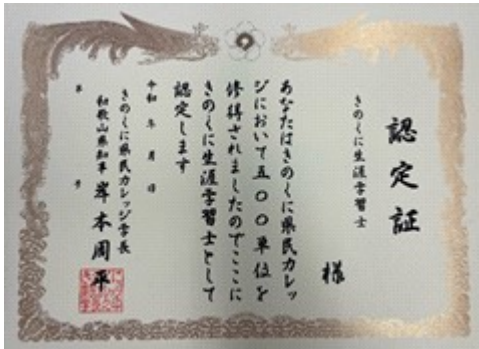 認定証
きのくに生涯学習士
様
あなたはきのくに県民カレッ
ジにおいて五〇〇単位を
修得されましたのでここに
きのくに生涯学習士として
認定します
令和 年 月 日
きのくに県民カレッジ学長
和歌山県知事 岸本周平
第 号